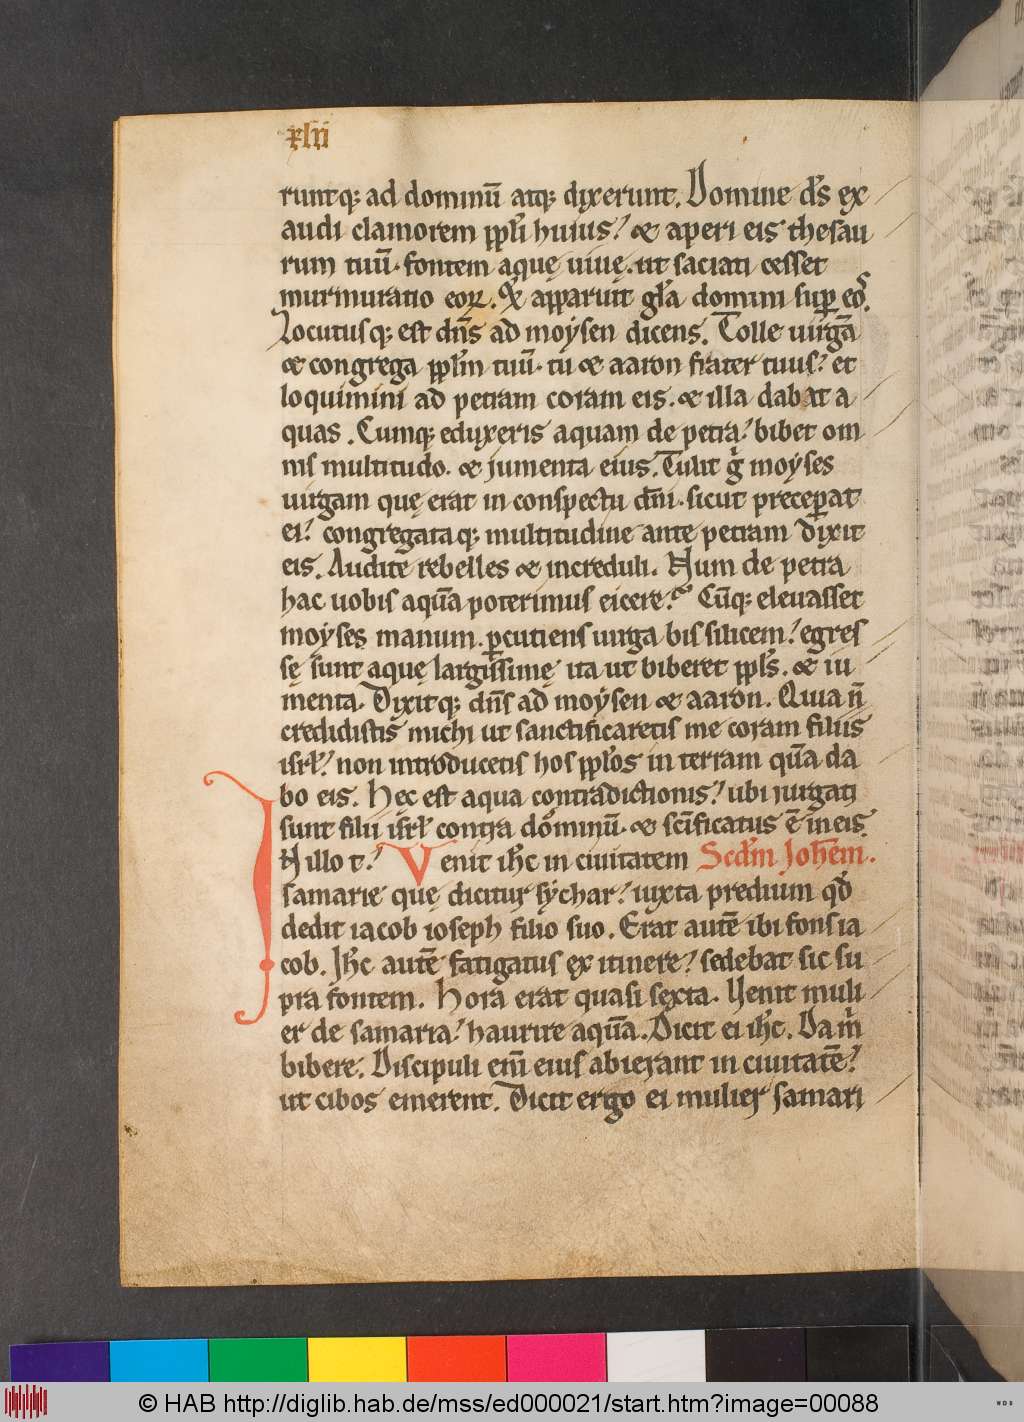 xlii
runtq; ad dominū atq; dixerunt. Domine ds̄ ex
audi clamorem ppl̄i huius. & aperi eis thesau
rum tuū. fontem aquę uiuę. ut saciati cesset
murmuratio eoꝝ. Et apparuit gl̄a domini suꝑ eos.
Locutusq; est dn̄s ad moẏsen dicens. Tolle uirgā
& congrega ppl̄m tuū. tu & aaron frater tuus. et
loquimini ad petram coram eis. & illa dabat a
quas. Cumq; eduxeris aquam de petra. bibet om
nis multitudo. & jumenta eius. Tulit gͥ moẏses
uirgam quę erat in conspectu dn̄i. sicut preceꝑat
ei. congregataq; multitudine ante petram dixit
eis. Audite rebelles & increduli. Num de petra
hac uobis aquā poterimus eicere? Cūq; eleuasset
moẏses manum. ꝑcutiens uirga bis silicem. egres
sę sunt aquę largissimę ita ut biberet ppl̄s. & iu
menta. Dixitq; dn̄s ad moẏsen & aaron. Quia n̄
credidistis michi ut sanctificaretis me coram filiis
isrl̄. non introducetis hos ppl̄os in terram quā da
bo eis. Hec est aqua contradictionis. ubi iurgati
sunt filii isrl̄ contra dominū. & scīficatus ē in eis.
IN illo t. Venit ih̄c in ciuitatem Scd̄m Joh̄em.
samarie quę dicitur sẏchar. iuxta predium qd̄
dedit iacob ioseph filio suo. Erat autē ibi fons ia
cob. Ih̄c autē fatigatus ex itinere. sedebat sic su
pra fontem. Hora erat quasi sexta. Uenit muli
er de samaria. haurire aquā. Dicit ei ih̄c. Da m̄
bibere. Discipuli enī eius abierant in ciuitatē.
ut cibos emerent. Dicit ergo ei mulier samari
© HAB http://diglib.hab.de/mss/ed000021/start.htm?image=00088